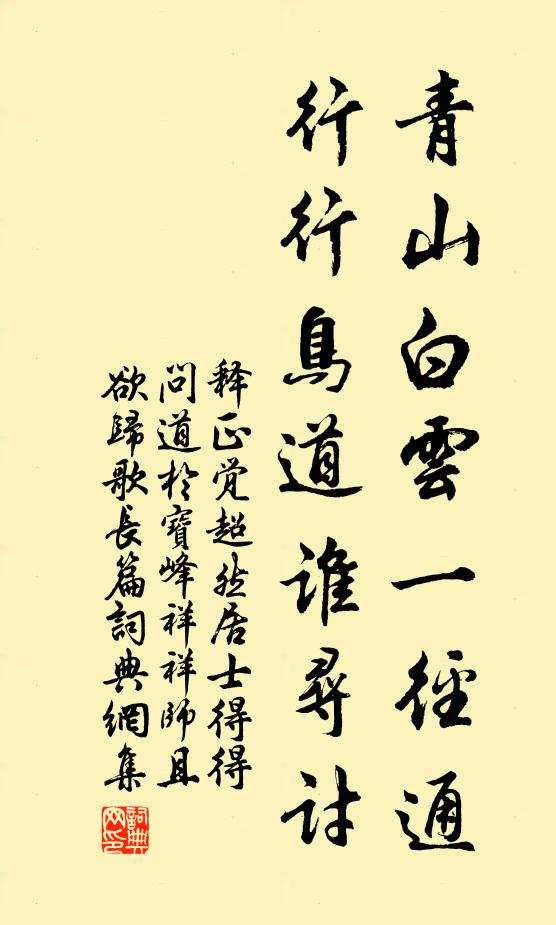 青山白雲一徑通
行行鳥道誰尋討
释正覚超然居士得得
问道於寶峰祥祥师且
欲歸歌長篇詞典網集
詞典
网印